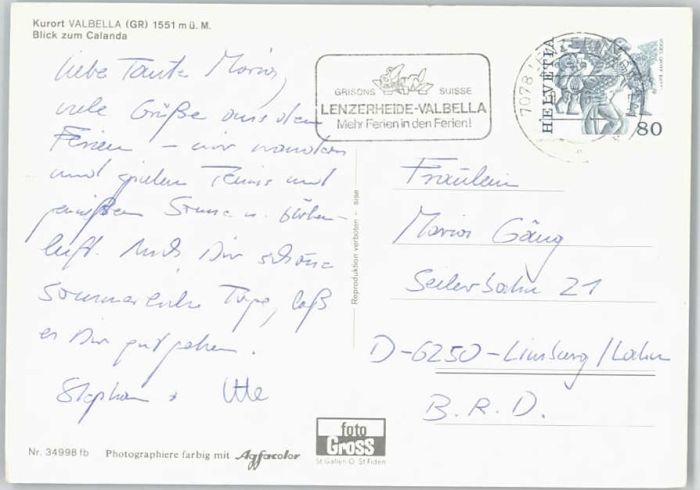 Kurort VALBELLA (GR) 1551 m ü. M.
Blick zum Calanda
Liebe Tante Maria,
viele Grüße aus den
Ferien – wir wandern
und spielen Tennis und
genießen Sonne u. Höhen-
luft. Auch Dir schöne
sommerliche Tage, laß
es Dir gut gehen.
Stephan + Ute
GRISONS SUISSE
LENZERHEIDE-VALBELLA
Mehr Ferien in den Ferien!
7078
HELVETIA
80
Fräulein
Maria Gäng
Seilerbahn 21
D-6250-Limburg/Lahn
B.R.D.
Reproduktion verboten – sise
Nr. 34998 fb Photographiere farbig mit Agfacolor
foto
Gross
St Gallen O. St Fiden